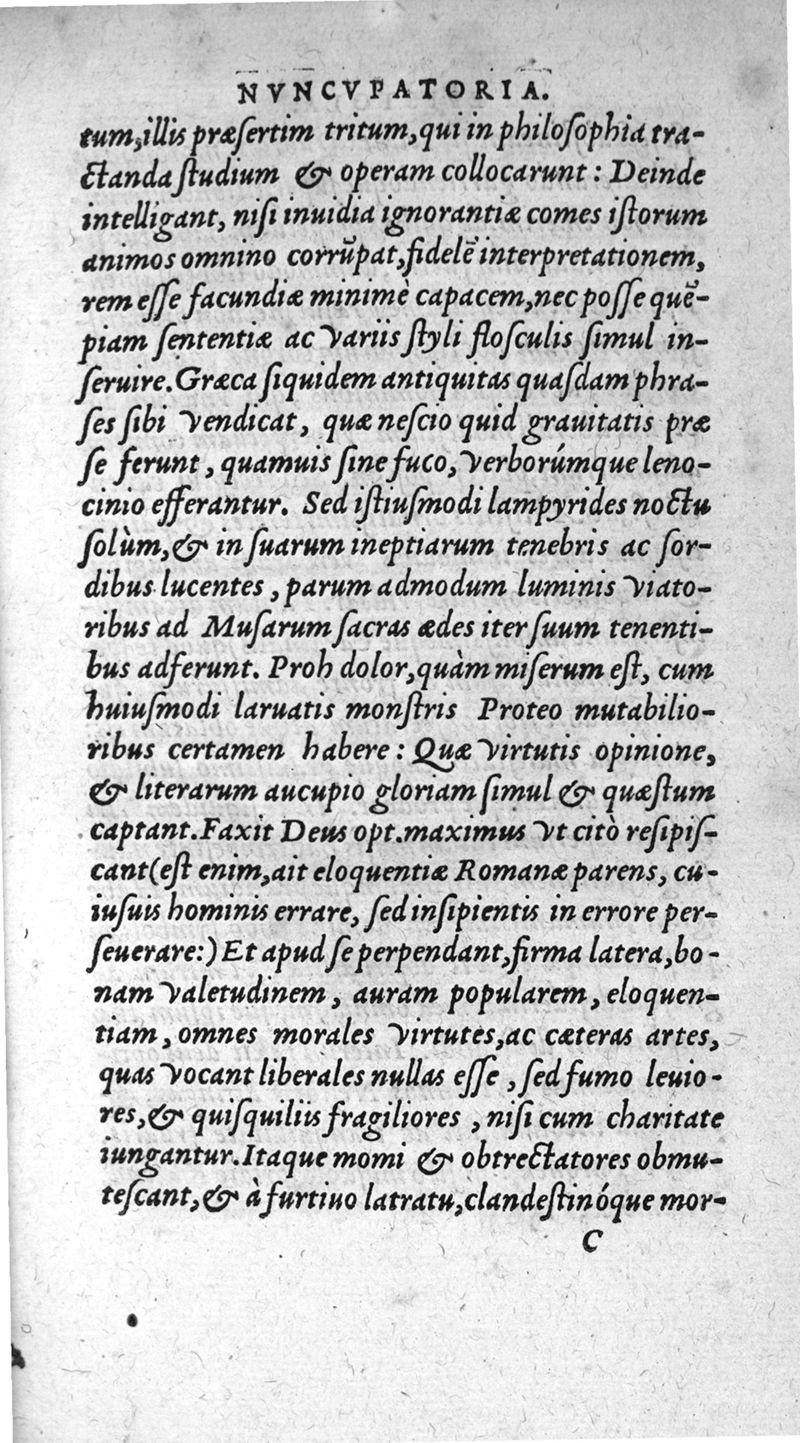 NVNCVPATORIA.
tum, illis præsertim tritum, qui in philosophia tra-
ctanda studium & operam collocarunt : Deinde
intelligant, nisi inuidia ignorantiæ comes istorum
animos omnino corrūpat, fidelē interpretationem,
rem esse facundiæ minimè capacem, nec posse quē-
piam sententiæ ac variis styli flosculis simul in-
seruire. Græca siquidem antiquitas quasdam phra-
ses sibi vendicat, quæ nescio quid grauitatis præ
se ferunt, quamuis sine fuco, verborúmque leno-
cinio efferantur. Sed istiusmodi lampyrides noctu
solùm, & in suarum ineptiarum tenebris ac sor-
dibus lucentes, parum admodum luminis viato-
ribus ad Musarum sacras ædes iter suum tenenti-
bus adferunt. Proh dolor, quàm miserum est, cum
huiusmodi laruatis monstris Proteo mutabilio-
ribus certamen habere : Quæ virtutis opinione,
& literarum aucupio gloriam simul & quæstum
captant. Faxit Deus opt. maximus vt citò resipis-
cant (est enim, ait eloquentiæ Romanæ parens, cu-
iusuis hominis errare, sed insipientis in errore per-
seuerare:) Et apud se perpendant, firma latera, bo-
nam valetudinem, auram popularem, eloquen-
tiam, omnes morales virtutes, ac cæteras artes,
quas vocant liberales nullas esse, sed fumo leuio-
res, & quisquiliis fragiliores, nisi cum charitate
iungantur. Itaque momi & obtrectatores obmu-
tescant, & à furtiuo latratu, clandestinóque mor-
C